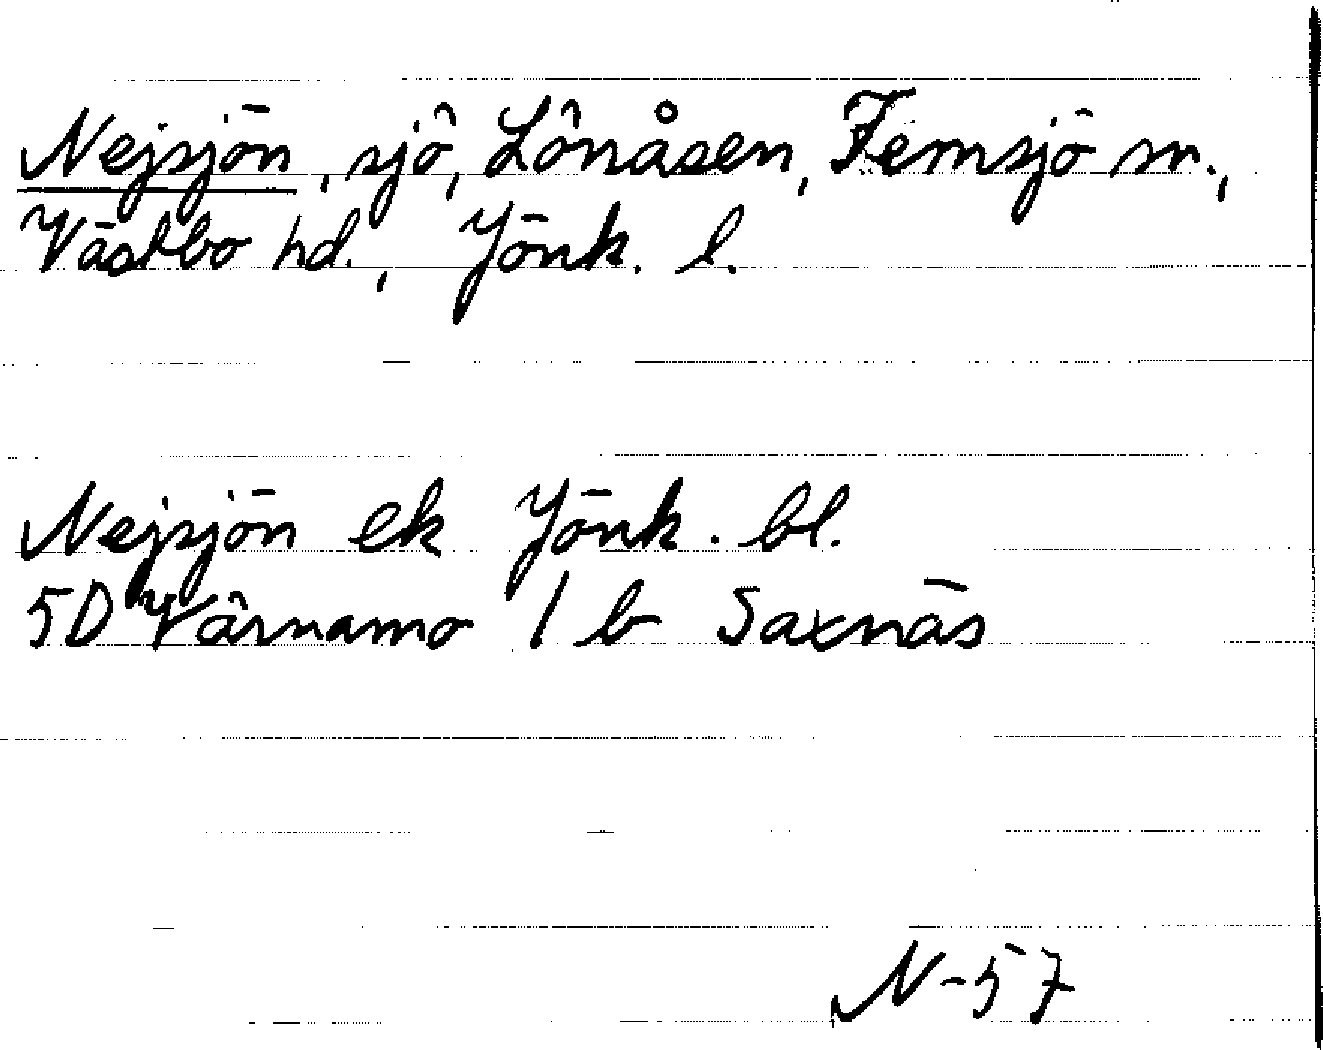 Nejsjön, sjö, Lönåsen, Femsjö sn.,
Västbo hd., Jönk. l.
Nejsjön ek Jönk. bl.
5D Värnamo 1 b Saxnäs
N-57